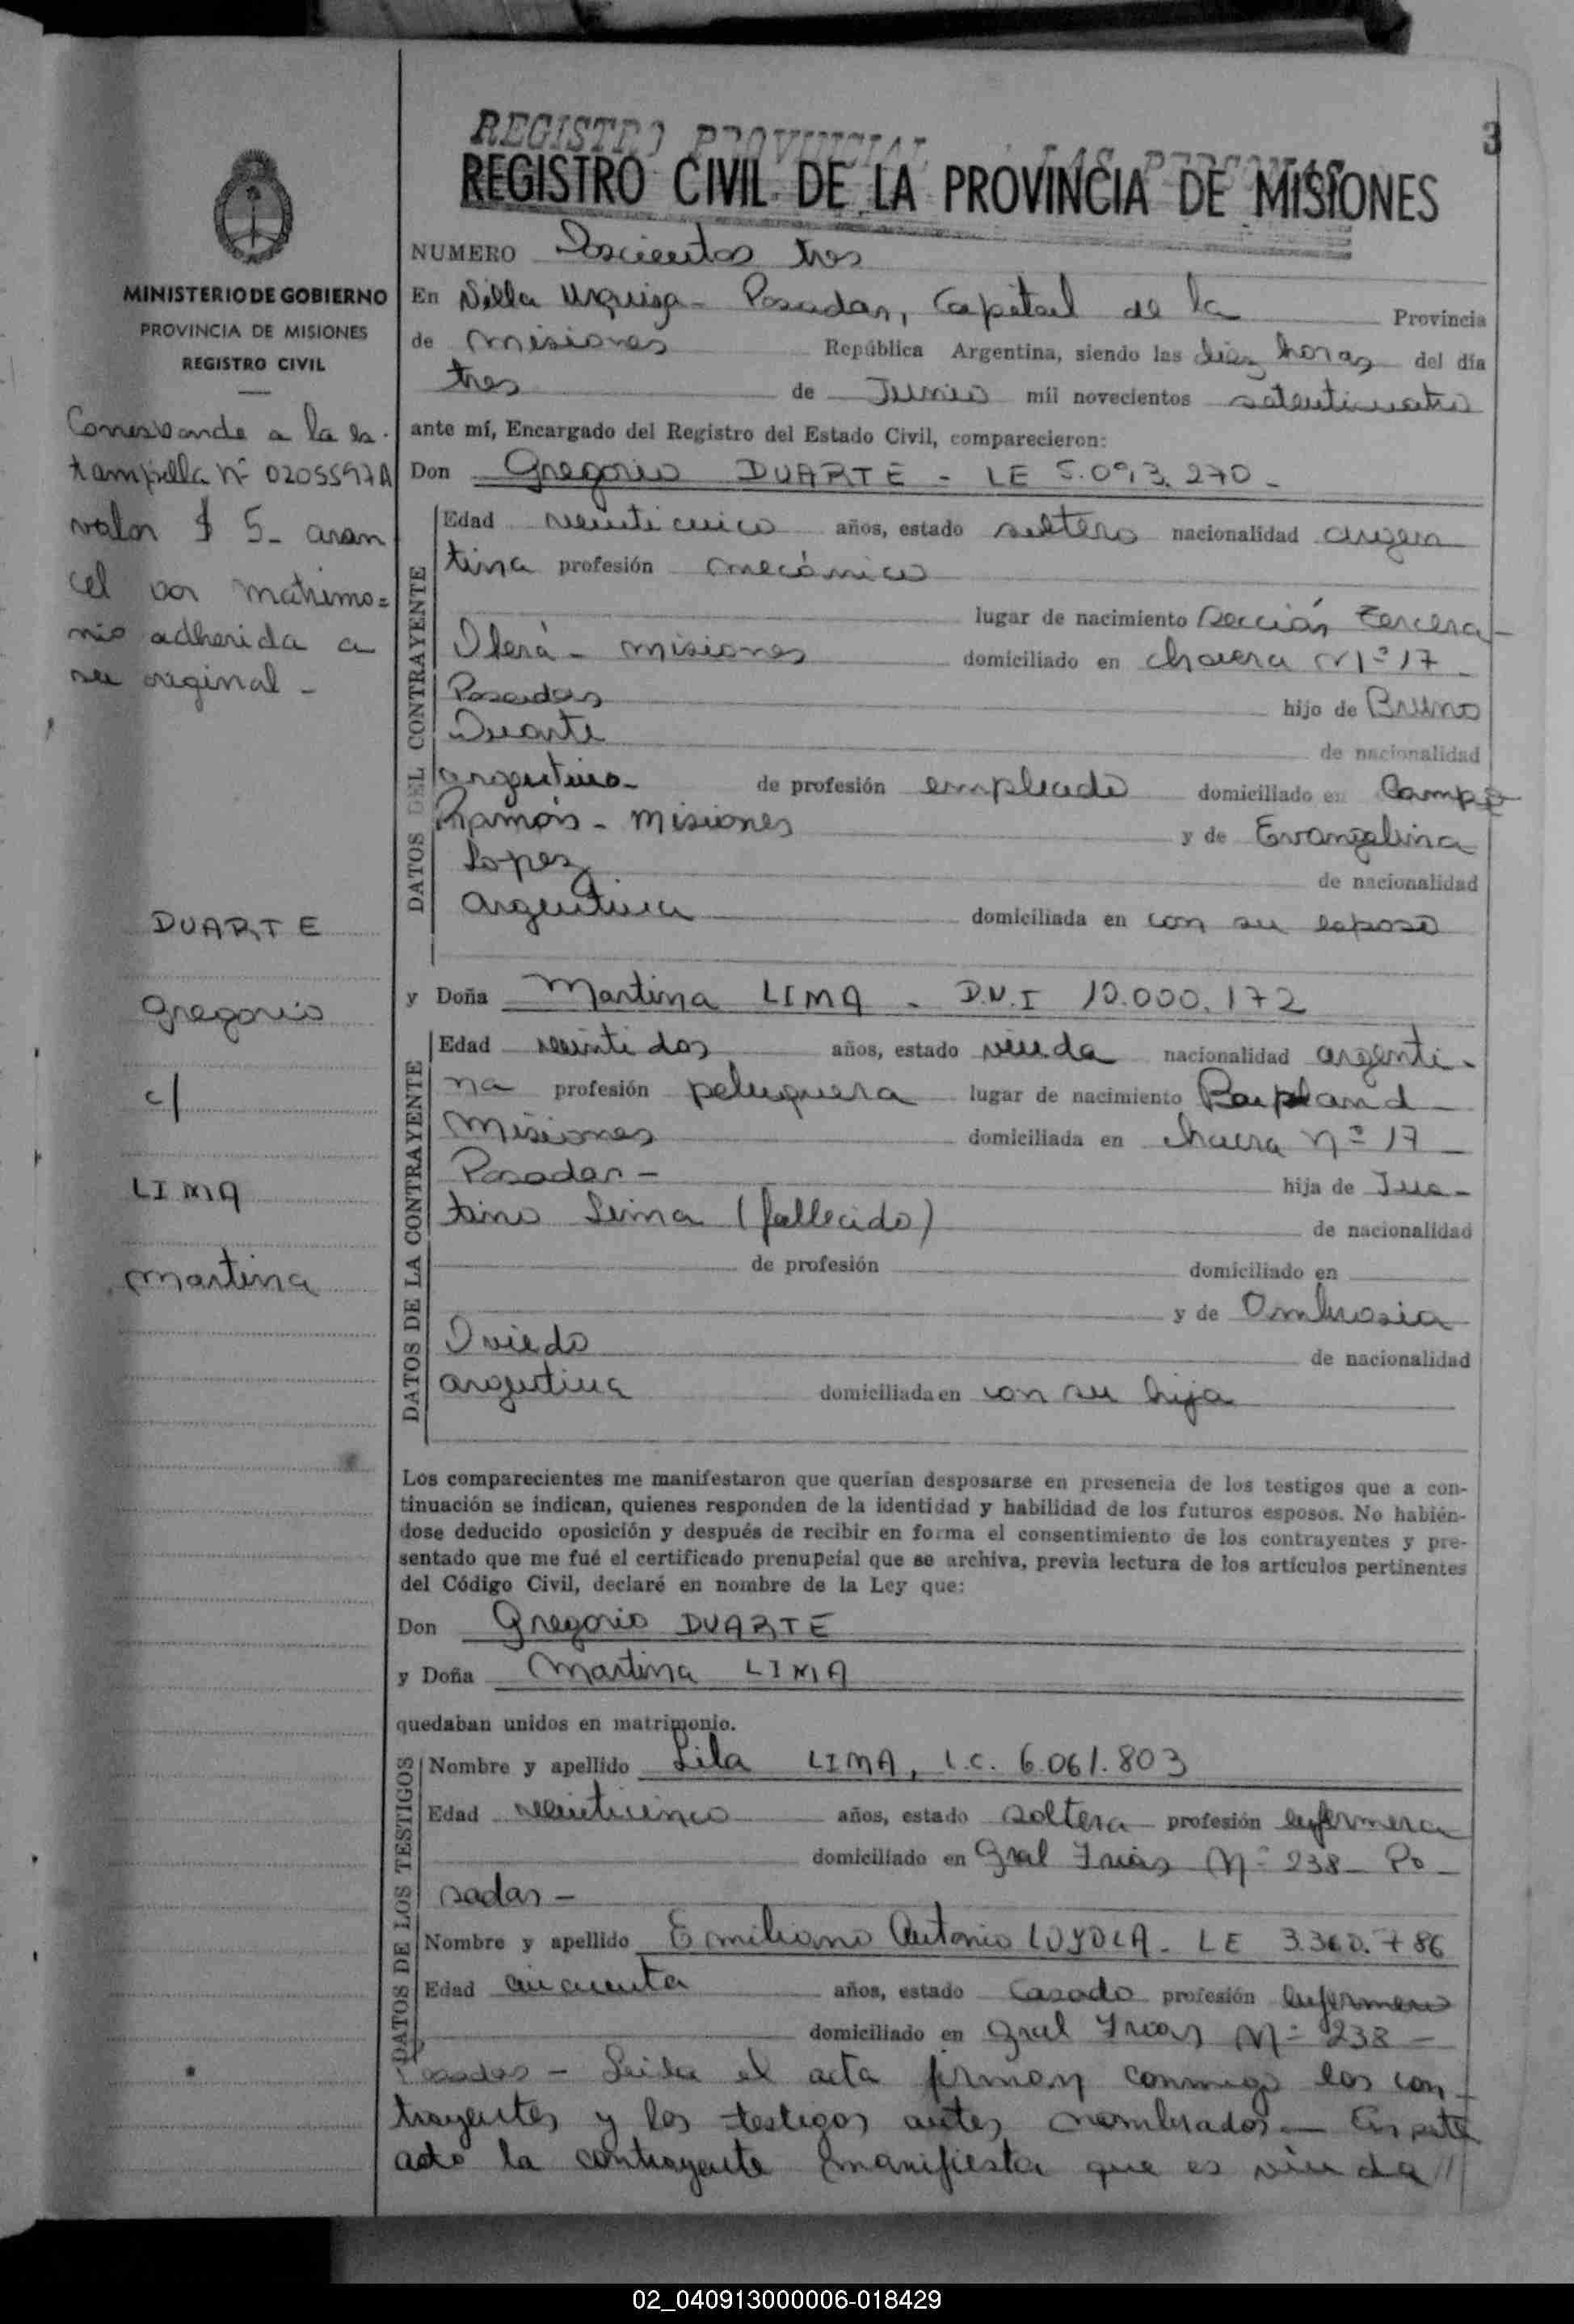 REGISTRO PROVINCIAL DE LAS PERSONAS
REGISTRO CIVIL DE LA PROVINCIA DE MISIONES
3
MINISTERIO DE GOBIERNO
PROVINCIA DE MISIONES
REGISTRO CIVIL
Corresponde a la es-
tampilla Nº 0205597A
valor $ 5- aran
cel por matrimo=
nio adherida a
su original -
DUARTE
Gregorio
c/
LIMA
Martina
NUMERO Doscientos tres
En Villa Urquiza - Posadas, Capital de la Provincia
de Misiones República Argentina, siendo las diez horas del día
tres de Junio mil novecientos setenticuatro
ante mí, Encargado del Registro del Estado Civil, comparecieron:
Don Gregorio DUARTE - LE 5.093.270-
DATOS DEL CONTRAYENTE
Edad veinticinco años, estado soltero nacionalidad argen
tina profesión mecánico
lugar de nacimiento Sección tercera-
Oberá - Misiones domiciliado en chacra Nº 17
Posadas hijo de Bruno
Duarte de nacionalidad
argentino- de profesión empleado domiciliado en Campo
Ramón - Misiones y de Evangelina
Lopez de nacionalidad
argentina domiciliada en con su esposo
y Doña Martina LIMA - D.N.I 10.000.172
DATOS DE LA CONTRAYENTE
Edad veintidos años, estado viuda nacionalidad argenti-
na profesión peluquera lugar de nacimiento
Misiones domiciliada en chacra nº 17
Posadas - hija de
tino Lima (fallecido) de nacionalidad
de profesión domiciliado en
y de Ombrosia
Oviedo de nacionalidad
argentina domiciliada en con su hija
Los comparecientes me manifestaron que querían desposarse en presencia de los testigos que a con-
tinuación se indican, quienes responden de la identidad y habilidad de los futuros esposos. No habién-
dose deducido oposición y después de recibir en forma el consentimiento de los contrayentes y pre-
sentado que me fué el certificado prenupcial que se archiva, previa lectura de los artículos pertinentes
del Código Civil, declaré en nombre de la Ley que:
Don Gregorio DUARTE
y Doña Martina LIMA
quedaban unidos en matrimonio.
DATOS DE LOS TESTIGOS
Nombre y apellido Lila LIMA, L.C. 6.061.803
Edad veinticinco años, estado soltera profesión enfermera
domiciliado en Gral Frias Nº 238- Po-
sadas -
Nombre y apellido Emiliano Antonio LOYOLA - LE 3.360.786
Edad cincuenta años, estado casado profesión enfermero
domiciliado en Gral Frias Nº 238 -
Posadas - Leida el acta firman conmigo los con-
trayentes y los testigos antes nombrados - En este
acto la contrayente manifiesta que es viuda //
02_040913000006-018429